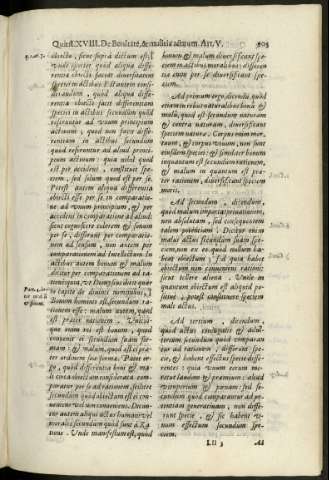 Quæst. XVIII. De Bonitate, & malitia actuum. Art. V. 505
obiecto, sicut suprà dictum est:
unde oportet quòd aliqua diffe-
rentia obiecti faciat diuersitatem
speciei in actibus. Est autem consi-
derandum, quòd aliqua diffe-
rentia obiecti facit differentiam
speciei in actibus secundum quòd
referuntur ad unum principium
actiuum, quòd non facit diffe-
rentiam in actibus secundum
quòd referuntur ad aliud princi-
pium actiuum: quia nihil quod
est per accidens, constituit spe-
ciem, sed solum quod est per se.
Potest autem aliqua differentia
obiecti esse per se in comparatio-
ne ad unum principium, & per
accidens in comparatione ad aliud:
sicut cognoscere colorem & sonum
per se, differunt per comparatio-
nem ad sensum, non autem per
comparationem ad intellectum. In
actibus autem bonum & malum
dicitur per comparationem ad ra-
tionem
Bonum hominis est, secundum ra-
tionem esse: malum autem, quod
est præter rationem. Unicui-
que enim rei est bonum, quod
conuenit ei secundum suam for-
mam: & malum, quod est ei præ-
ter ordinem suæ formæ. Patet er-
go, quòd differentia boni & ma-
li circa obiectum considerata, com-
paratur per se ad rationem, scilicet
secundum quòd obiectum est ei con-
ueniens vel non conueniens. Dicun-
tur autem aliqui actus humani vel
morales secundum quòd sunt à ra-
tione. Unde manifestum est, quòd
bonum & malum diuersificant spe-
ciem in actibus moralibus: differen-
tiæ enim per se diuersificant spe-
ciem.
Ad primum ergo dicendum, quòd
etiam in rebus naturalibus bonum &
malum, quod est secundum naturam
& contra naturam, diuersificant
speciem naturæ. Corpus enim mor-
tuum, & corpus uiuum, non sunt
eiusdem speciei: & similiter bonum
inquantum est secundum rationem,
& malum in quantum est præ-
ter rationem, diuersificant speciem
moris.
Ad secundum, dicendum,
quòd malum importat priuationem,
non absolutam, sed consequentem
talem potentiam. Dicitur enim
malus actus secundum suam spe-
ciem, non ex eo quòd nullum ha-
beat obiectum: sed quia habet
obiectum non conueniens rationi:
sicut tollere aliena. Unde in
quantum obiectum est aliquid po-
sitiuè, potest constituere speciem
mali actus.
Ad tertium, dicendum,
quòd actus coniugalis & adul-
terium secundum quòd comparan-
tur ad rationem, differunt spe-
cie, & habent effectus specie diffe-
rentes: quia unum eorum me-
retur laudem & præmium: aliud
uituperium & pœnam: sed se-
cundum quòd comparantur ad po-
tentiam generatiuam, non diffe-
runt specie, & sic habent u-
num effectum secundum spe-
ciem.
Ll 3 Ad